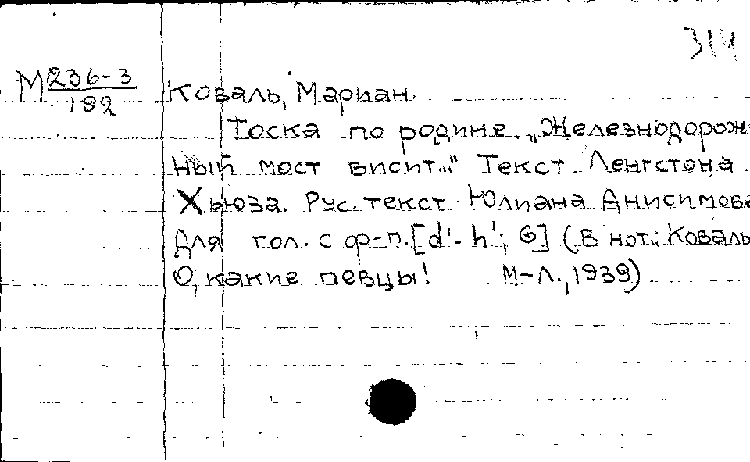 314
М 236-3
192
Коваль, Мариан.
Тоска по родине. „Железнодорож-
ный мост висит..." Текст Ленгстона
Хьюза. Рус. текст Юлиана Анисимова
Для гол. с ф-п. [d'-h'; G] (В нот.: Коваль
О, какие певцы! М-Л., 1939)